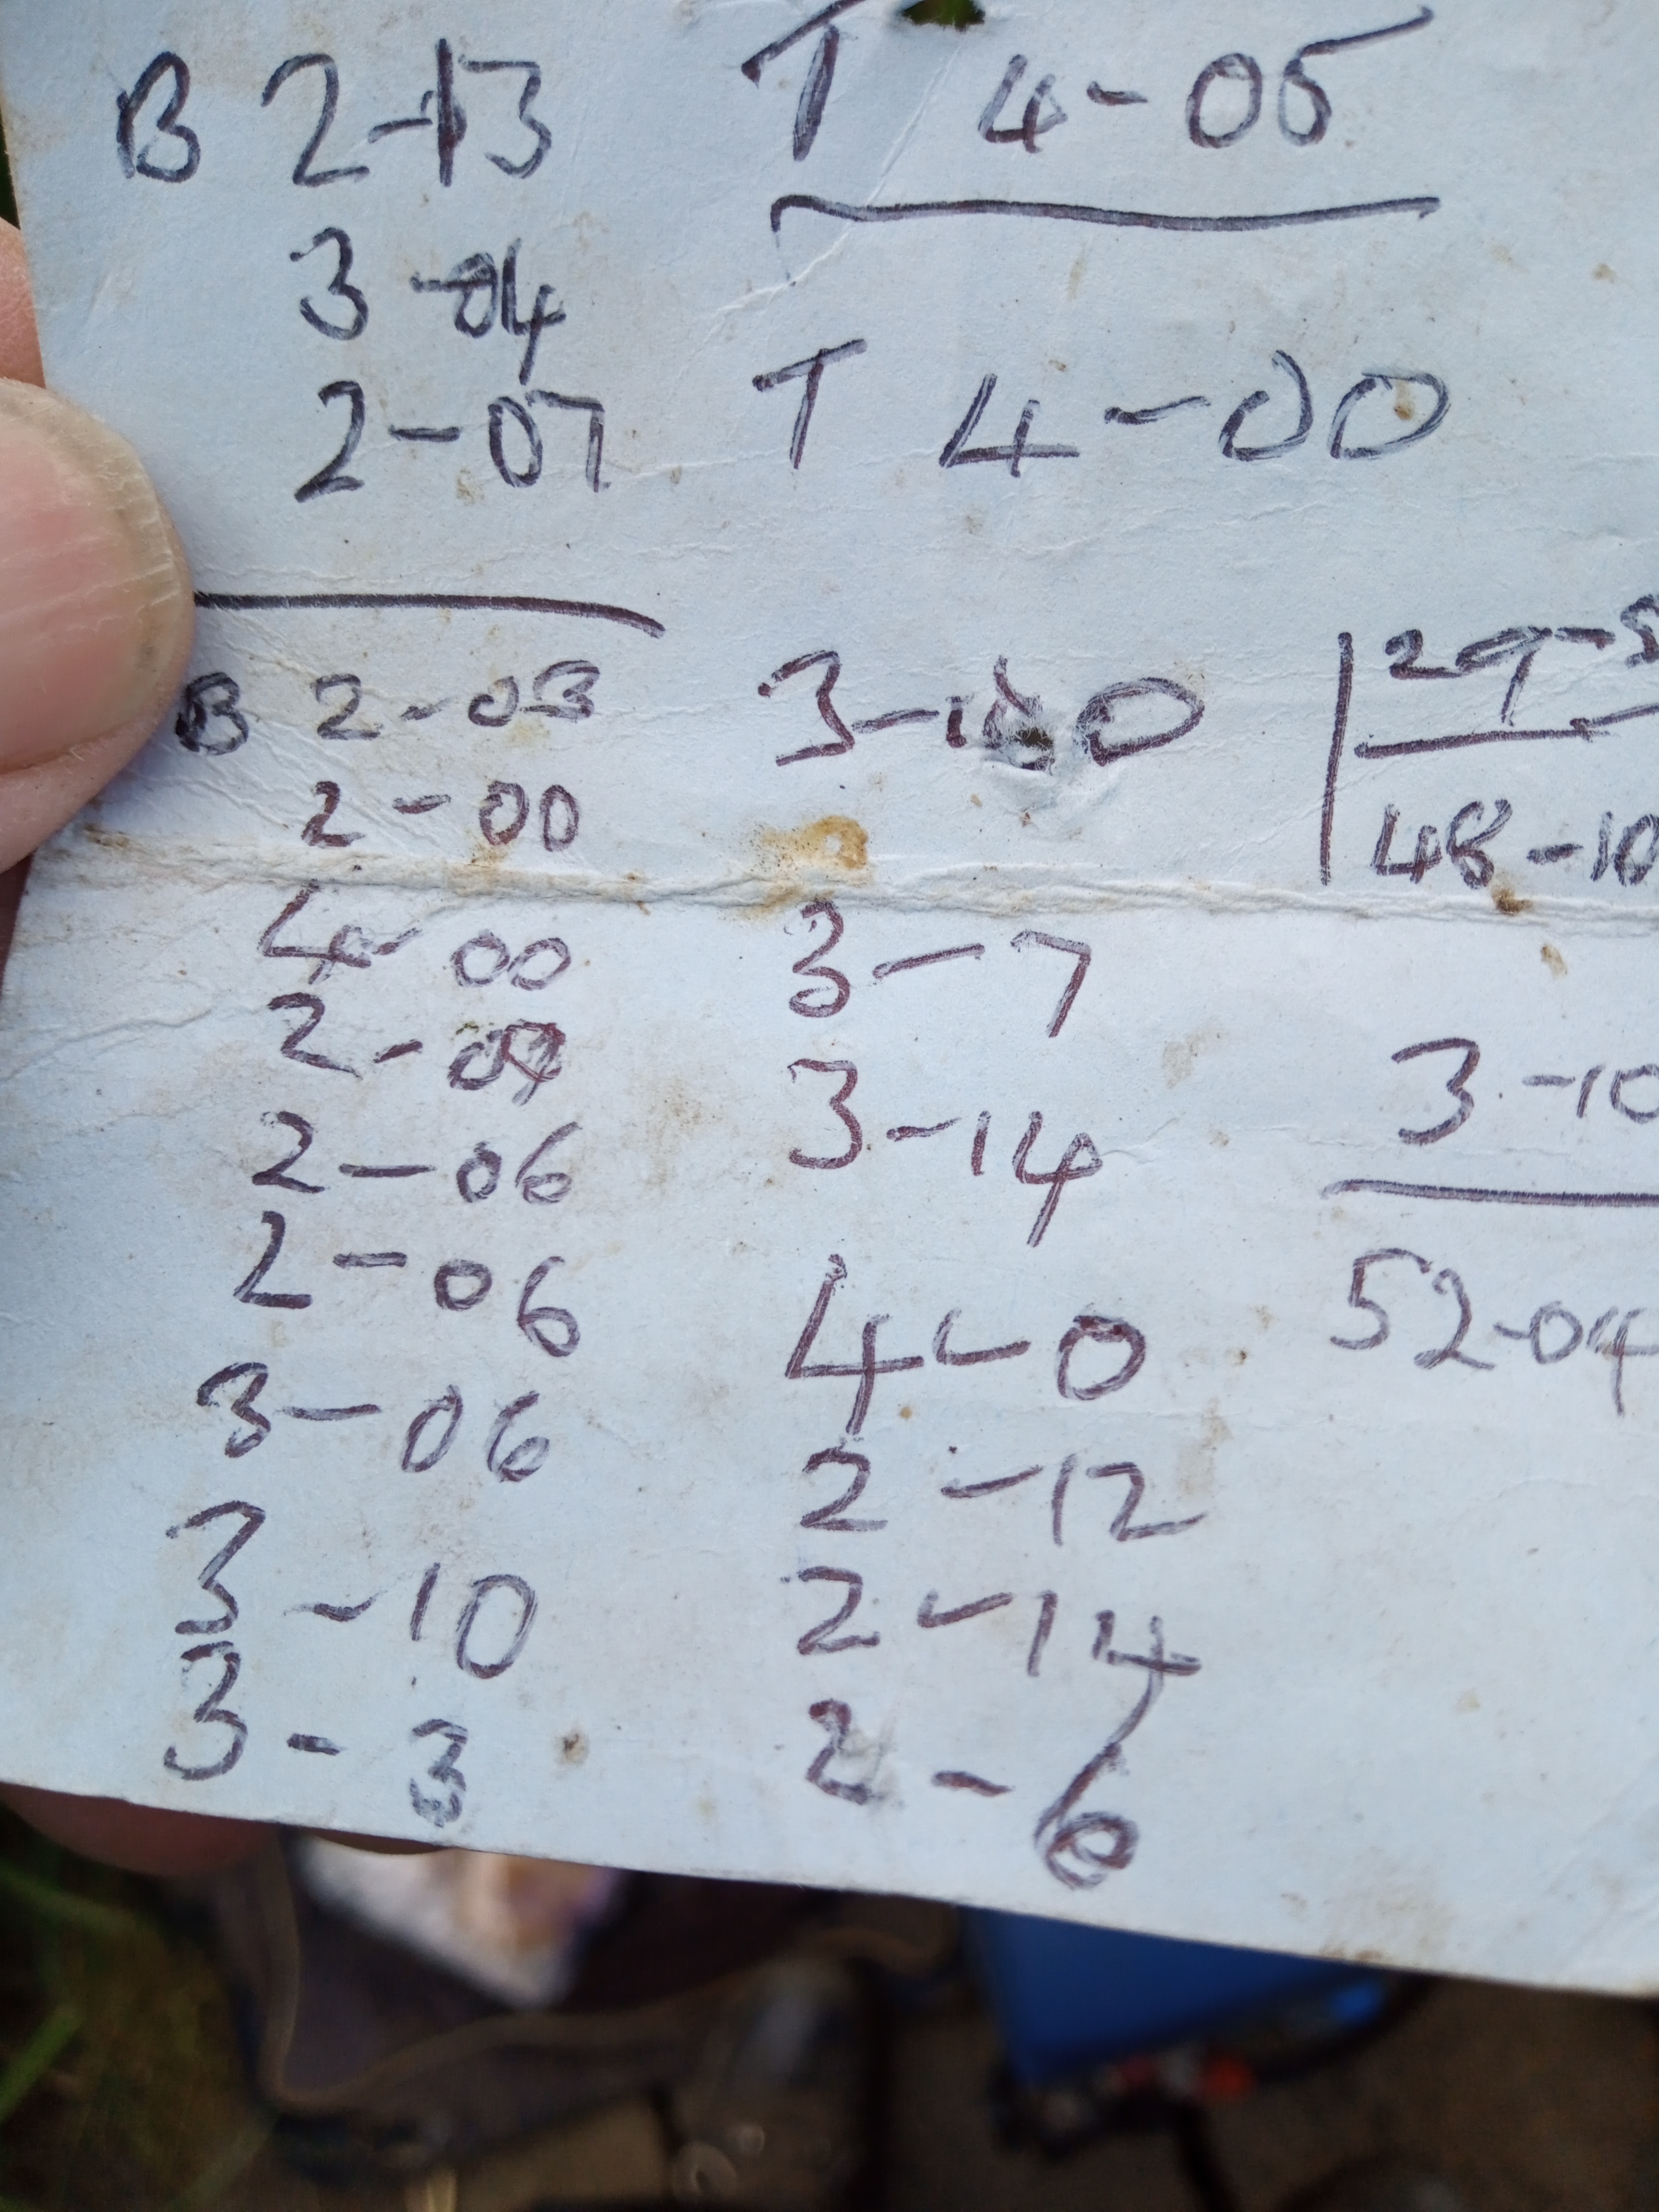 B 2-13
3-04
2-07
B 2-03
2-00
4-00
2-09
2-06
2-06
3-06
3-10
3-3
T 4-05
T 4-00
3-10
3-7
3-14
4-0
2-12
2-14
2-6
29-
48-10
3-10
52-04